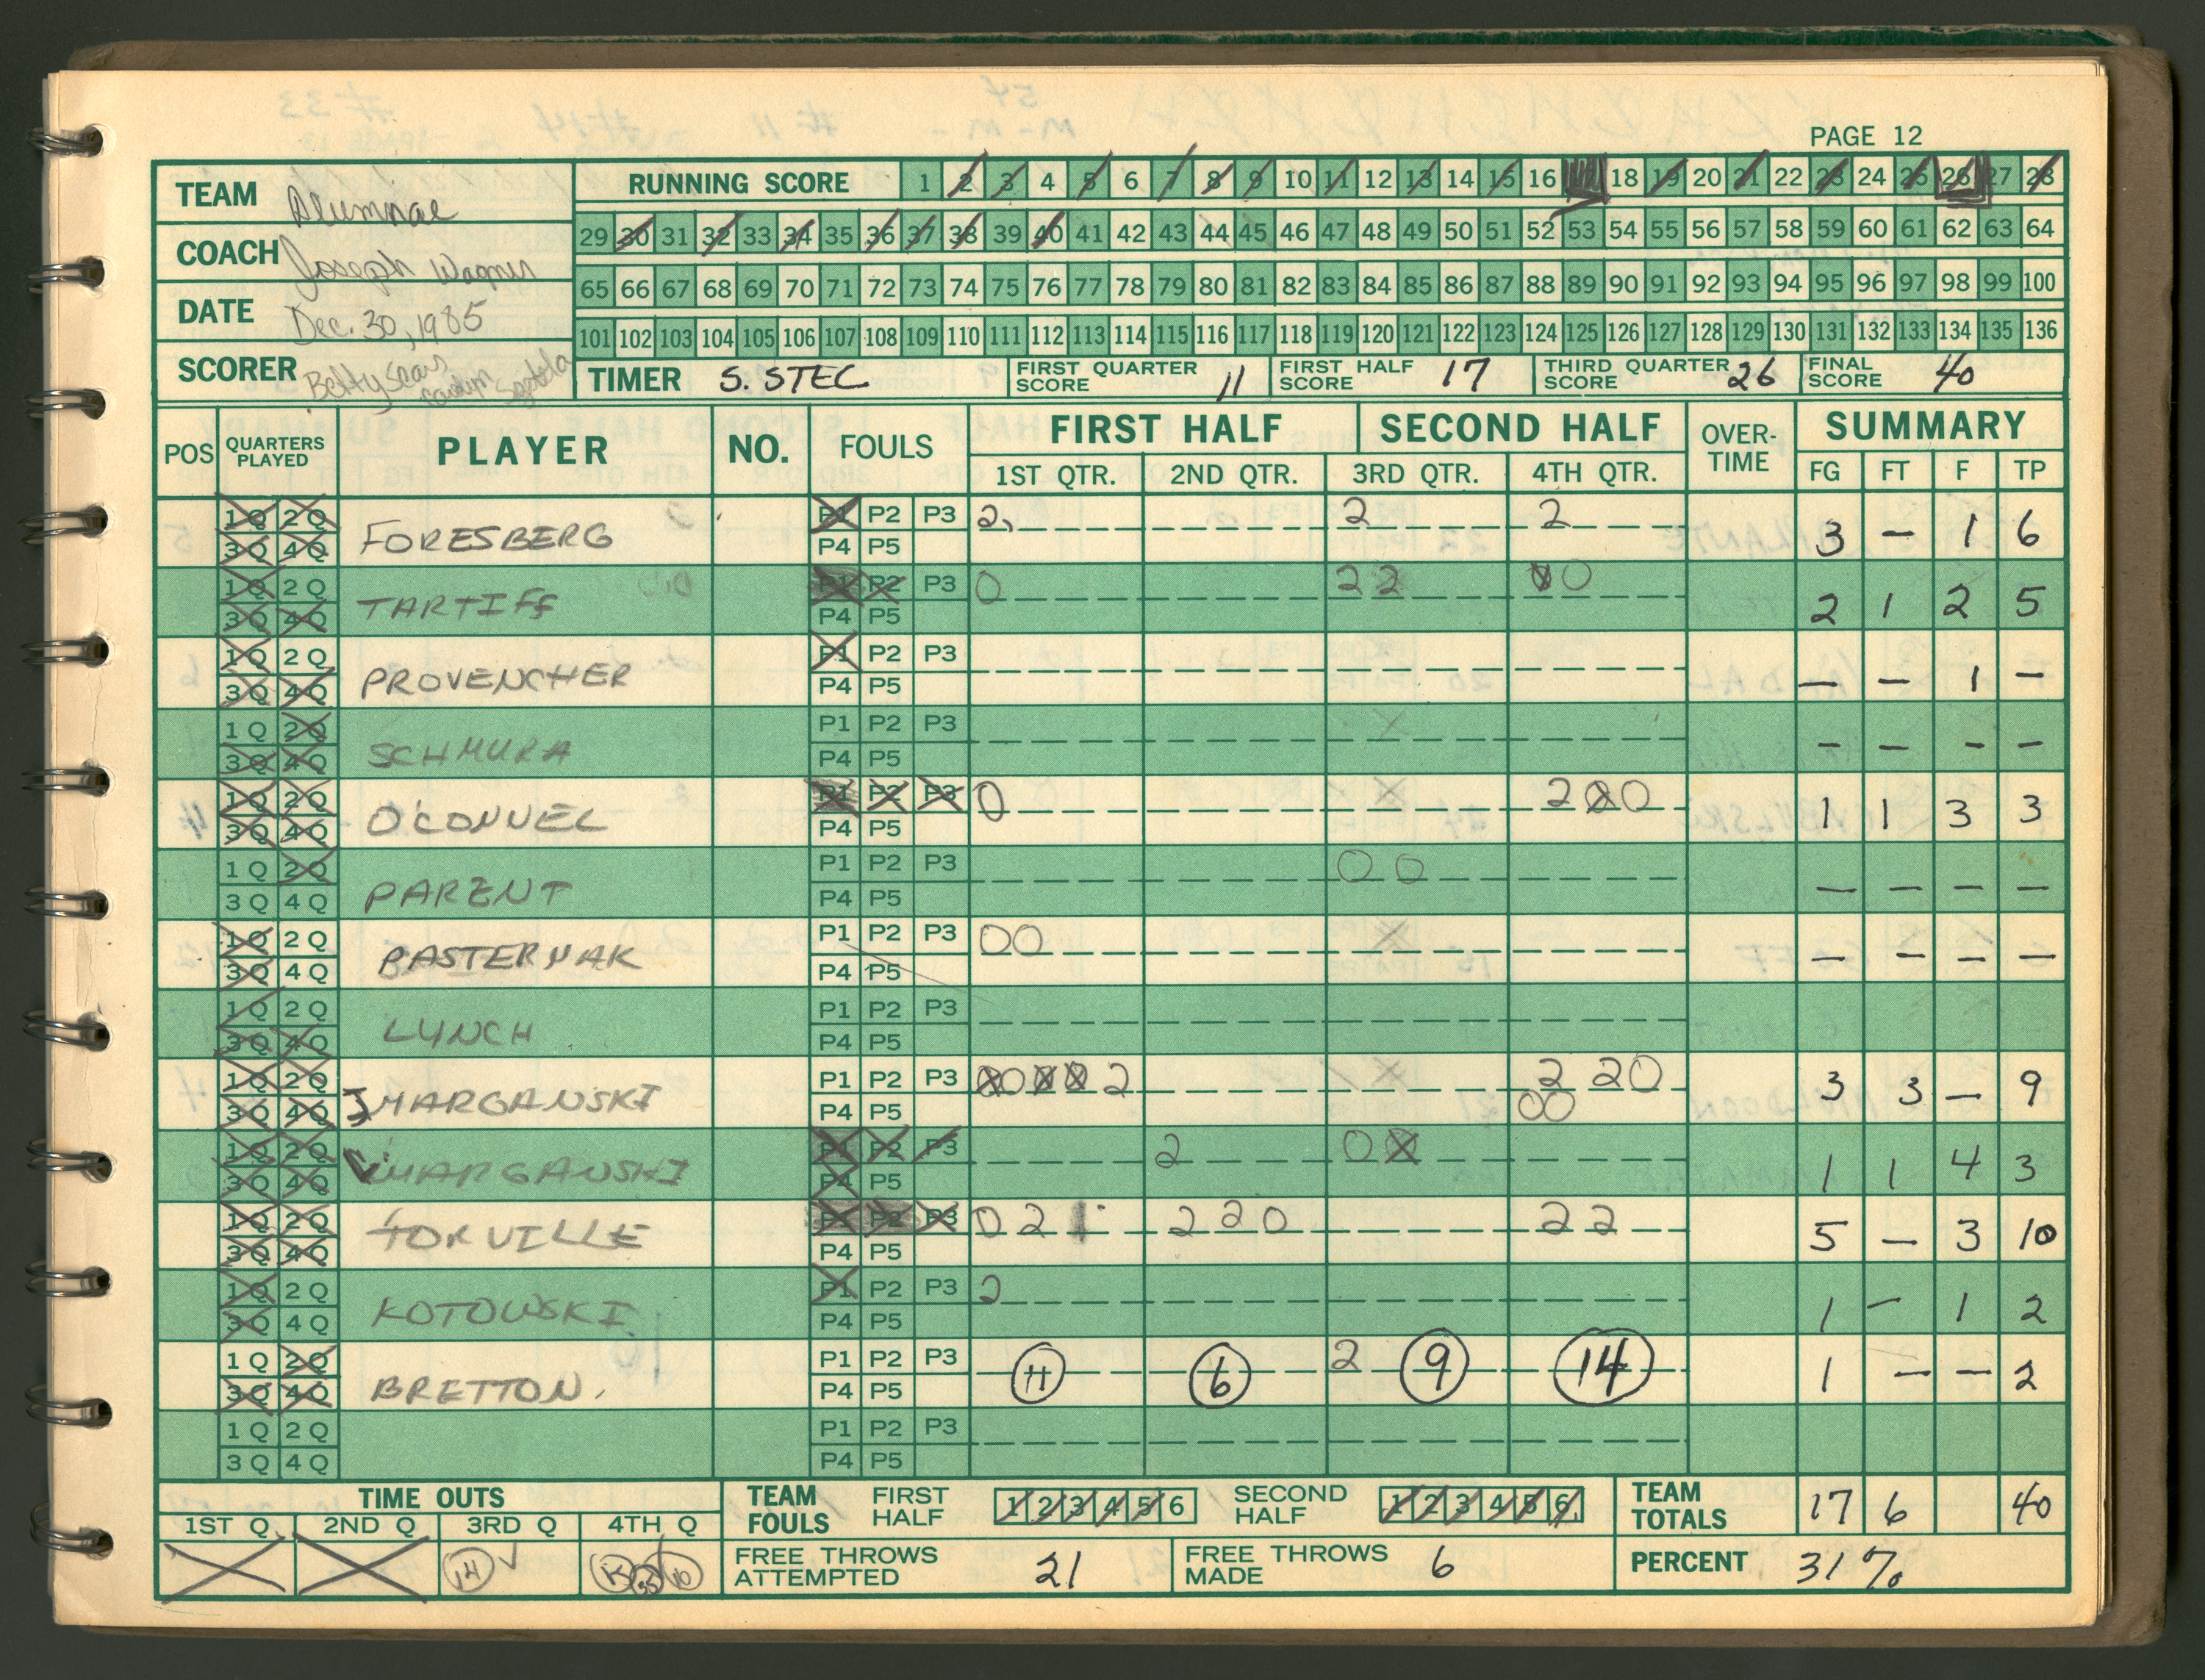 PAGE 12
TEAM Alumnae
COACH Joseph Wagner
DATE Dec. 30, 1985
SCORER Betty Sears
RUNNING SCORE 1 2 3 4 5 6 7 8 9 10 11 12 13 14 15 16 18 19 20 21 22 23 24 25 26 27 28
29 30 31 32 33 34 35 36 37 38 39 40 41 42 43 44 45 46 47 48 49 50 51 52 53 54 55 56 57 58 59 60 61 62 63 64
65 66 67 68 69 70 71 72 73 74 75 76 77 78 79 80 81 82 83 84 85 86 87 88 89 90 91 92 93 94 95 96 97 98 99 100
101 102 103 104 105 106 107 108 109 110 111 112 113 114 115 116 117 118 119 120 121 122 123 124 125 126 127 128 129 130 131 132 133 134 135 136
TIMER S. STEC FIRST QUARTER SCORE 11 FIRST HALF SCORE 17 THIRD QUARTER SCORE 26 FINAL SCORE 40
POS QUARTERS PLAYED PLAYER NO. FOULS FIRST HALF SECOND HALF OVER-TIME SUMMARY
1ST QTR. 2ND QTR. 3RD QTR. 4TH QTR. FG FT F TP
1Q 2Q P1 P2 P3 2 2 2
3Q 4Q FORESBERG P4 P5 3 - 1 6
1Q 2Q P1 P2 P3 0 2 2 0 0
3Q 4Q TARTIFF P4 P5 2 1 2 5
1Q 2Q P1 P2 P3
3Q 4Q PROVENCHER P4 P5 - - 1 -
1Q 2Q P1 P2 P3
3Q 4Q SCHMURA P4 P5 - - - -
1Q 2Q P1 P2 P3 0 2 0 0
3Q 4Q O'CONNEL P4 P5 1 1 3 3
1Q 2Q P1 P2 P3 0 0
3Q 4Q PARENT P4 P5 - - - -
1Q 2Q P1 P2 P3 0 0
3Q 4Q PASTERNAK P4 P5 - - - -
1Q 2Q P1 P2 P3
3Q 4Q LYNCH P4 P5
1Q 2Q P1 P2 P3 0 0 0 0 2 2 2 0
3Q 4Q J MARGANSKI P4 P5 0 0 3 3 - 9
1Q 2Q P1 P2 P3 2 0 0
3Q 4Q V MARGANSKI P4 P5 1 1 4 3
1Q 2Q P1 P2 P3 0 2 2 2 0 2 2
3Q 4Q TORVILLE P4 P5 5 - 3 10
1Q 2Q P1 P2 P3 2
3Q 4Q KOTOWSKI P4 P5 1 - 1 2
1Q 2Q P1 P2 P3 11 6 2 9 14
3Q 4Q BRETTON. P4 P5 1 - - 2
1Q 2Q P1 P2 P3
3Q 4Q P4 P5
TIME OUTS TEAM FOULS FIRST HALF 1 2 3 4 5 6 SECOND HALF 1 2 3 4 5 6 TEAM TOTALS 17 6 40
1ST Q 2ND Q 3RD Q 4TH Q
14 FREE THROWS ATTEMPTED 21 FREE THROWS MADE 6 PERCENT 31%